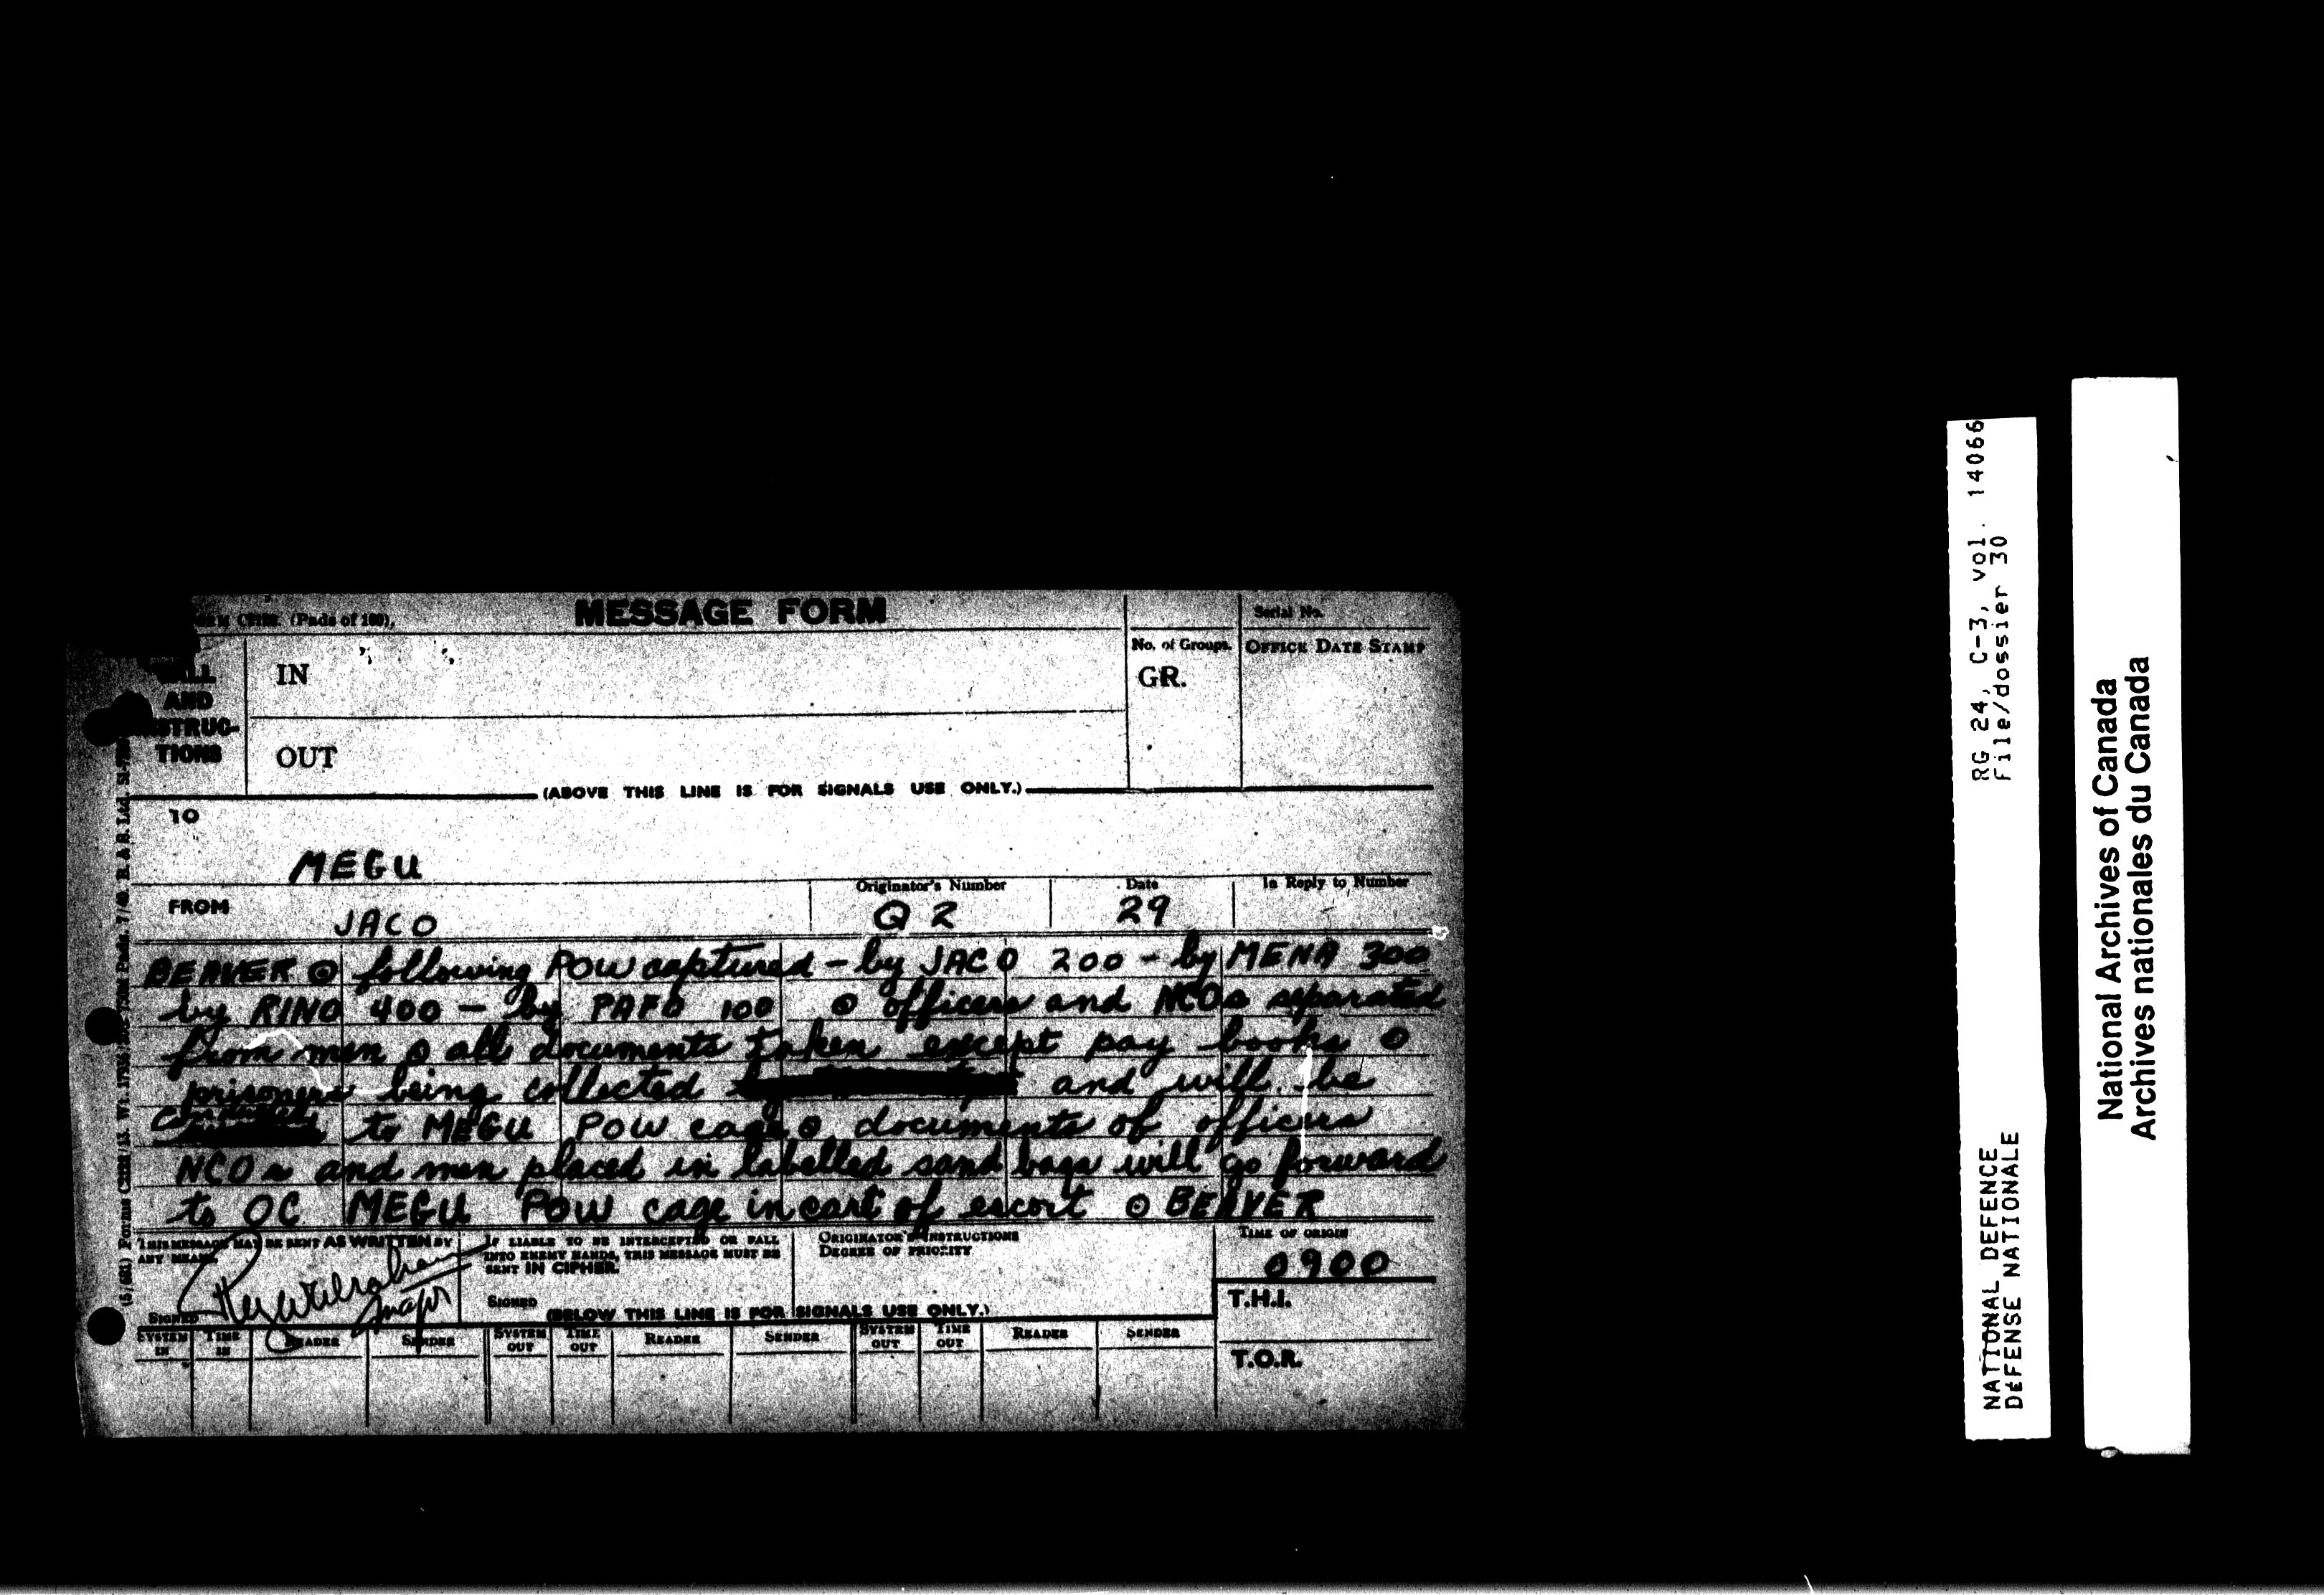 MESSAGE FORM
(Pads of 100).
Serial No.
No. of Groups.
OFFICE DATE STAMP
IN
GR.
AND
TIONS
OUT
(ABOVE THIS LINE IS FOR SIGNALS USE ONLY.)
TO
MEGU
FROM
JACO
Originator's Number
Q 2
Date
29
In Reply to Number
BEAVER ⊙ following POW captured - by JACO 200 - by MENA 300
by RINO 400 - by PAFO 100 ⊙ officers and NCOs separated
from men ⊙ all documents taken except pay books ⊙
prisoners being collected and will be
conducted to MEGU POW cage ⊙ documents of officers
NCOs and men placed in labelled sand bags will go forward
to OC MEGU POW cage in care of escort ⊙ BEAVER
THIS MESSAGE MAY BE SENT AS WRITTEN BY
ANY MEANS.
Major
SIGNED
IF LIABLE TO BE INTERCEPTED OR FALL
INTO ENEMY HANDS, THIS MESSAGE MUST BE
SENT IN CIPHER.
SIGNED
ORIGINATOR'S INSTRUCTIONS
DEGREE OF PRIORITY
TIME OF ORIGIN
0900
T.H.I.
T.O.R.
(BELOW THIS LINE IS FOR SIGNALS USE ONLY.)
SYSTEM IN TIME IN READER SENDER SYSTEM OUT TIME OUT READER SENDER SYSTEM OUT TIME OUT READER SENDER
RG 24, C-3, vol. 14066
File/dossier 30
NATIONAL DEFENCE
DÉFENSE NATIONALE
National Archives of Canada
Archives nationales du Canada